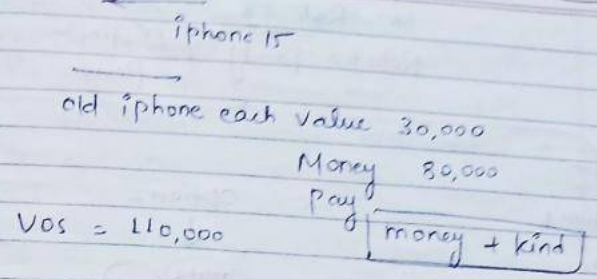 iphone 15
old iphone each value 30,000
Money 80,000
Pay
VOS = 110,000
money + kind